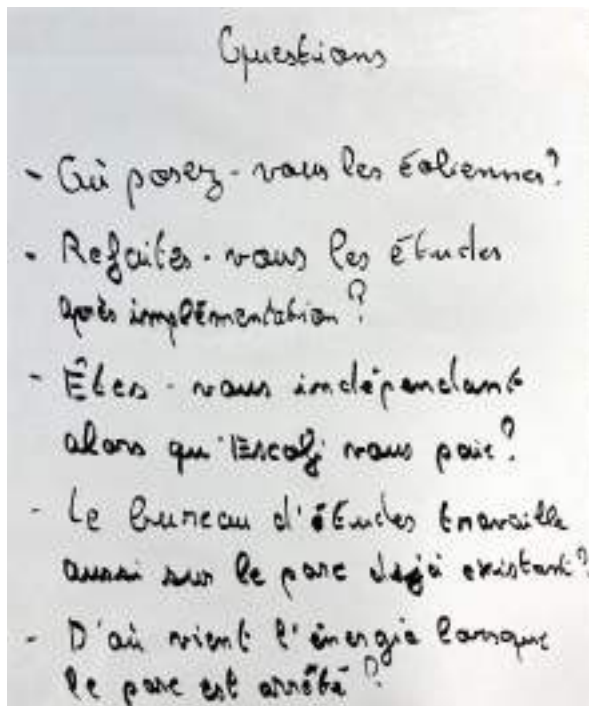 Questions
- Où posez-vous les éoliennes?
- Refaites-vous les études
après implémentation?
- Êtes-vous indépendant
alors qu'Escofi vous paie?
- Le bureau d'études travaille
aussi sur le parc dejà existant?
- D'où vient l'énergie lorsque
le parc est arrêté?